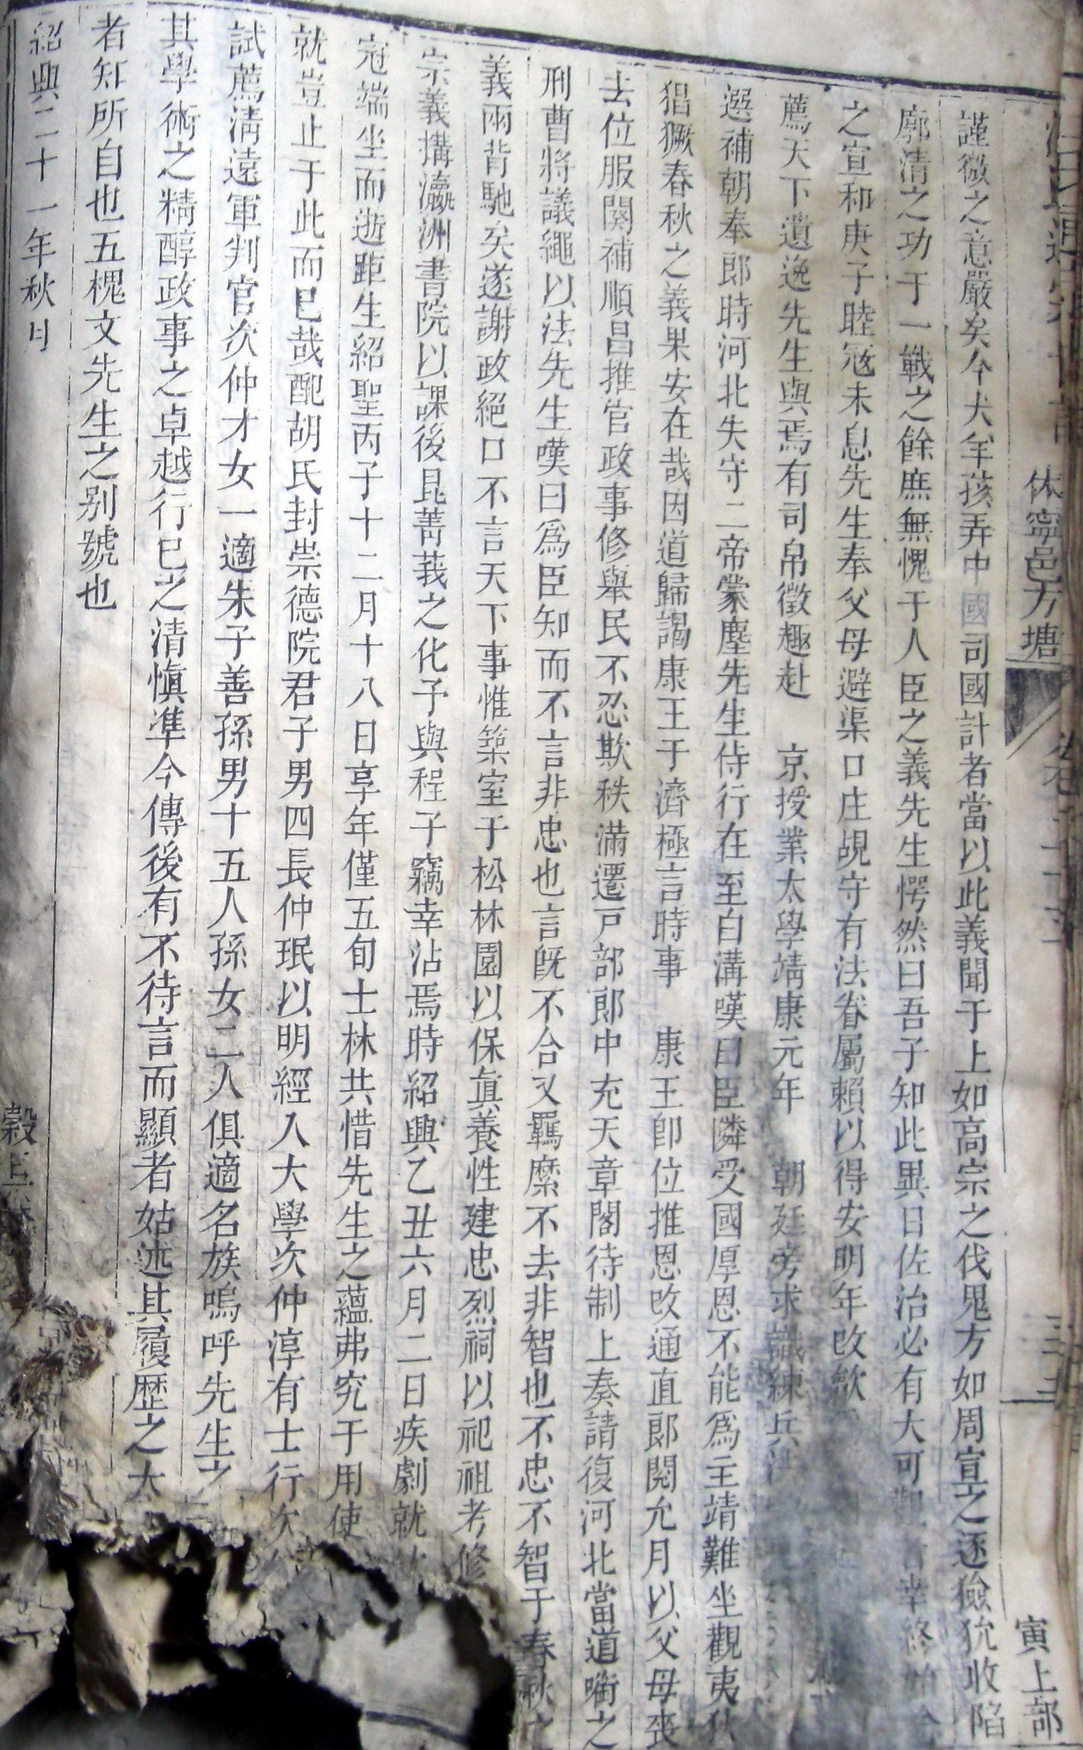 休寧邑方塘 寅上部
謹微之意嚴矣今犬羊孩弄中國司國計者當以此義聞于上如高宗之伐鬼方如周宣之逐獫狁收陷
廓清之功于一戰之餘庶無愧于人臣之義先生愕然曰吾子知此異日佐治必有大可
之宣和庚子睦冦未息先生奉父母避渠口庄覘守有法眷屬賴以得安明年改歙
薦天下遺逸先生與焉有司帛徵趣赴 京授業太學靖康元年 朝廷旁求識練兵
選補朝奉郎時河北失守二帝蒙塵先生侍行在至白溝嘆曰臣隣受國厚恩不能爲主靖難坐觀夷狄
猖獗春秋之義果安在哉因道歸謁康王于濟極言時事 康王卽位推恩改通直郎閱九月以父母喪
去位服闋補順昌推官政事修舉民不忍欺秩滿遷戸部郎中充天章閣待制上奏請復河北當道嗛之
刑曹將議繩以法先生嘆曰爲臣知而不言非忠也言既不合又羈縻不去非智也不忠不智于春秋之
義兩背馳矣遂謝政絕口不言天下事惟築室于松林園以保眞養性建忠烈祠以祀祖考修
宗義搆瀛洲書院以課後昆菁莪之化予與程子竊幸沾焉時紹興乙丑六月二日疾劇就
冠端坐而逝距生紹聖丙子十二月十八日享年僅五旬士林共惜先生之蘊弗究于用使
就豈止于此而已哉配胡氏封崇德院君子男四長仲珉以明經入大學次仲淳有士行次
試薦淸遠軍判官次仲才女一適朱子善孫男十五人孫女二人俱適名族嗚呼先生之
其學術之精醇政事之卓越行已之清慎準今傳後有不待言而顯者姑述其履歴之大
者知所自也五槐文先生之别號也
紹興二十一年秋月